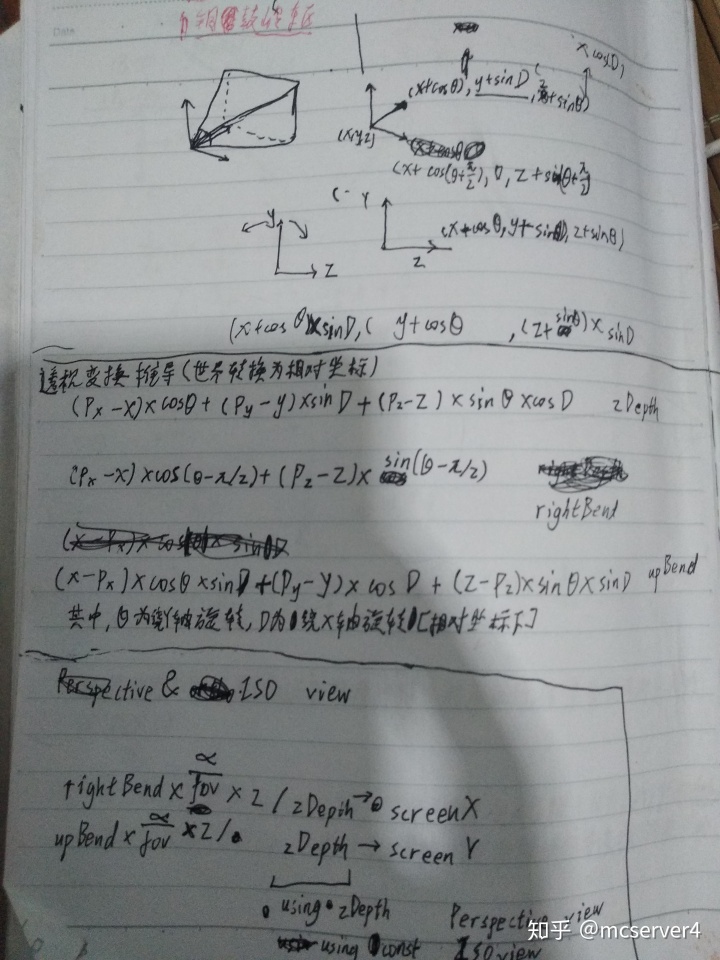 Date
x cos(D)
(x+cosθ), y+sinD, z+sinθ)
(x,y,z)
(x+ cos(θ+π/2), 0, z+sin(θ+π/2)
(- Y
y
(x+cosθ, y+sinD, z+sinθ)
z
z
(x+cosθ)×sinD, ( y+cosθ , (z+sinθ)×sinD
透视变换推导(世界转换为相对坐标)
(Px-x)×cosθ+(Py-y)×sinD+(Pz-z)×sinθ×cosD zDepth
(Px-x)×cos(θ-π/2)+(Pz-z)×sin(θ-π/2)
rightBend
(x-Px)×cosθ×sinD+(Py-y)×cosD+(z-Pz)×sinθ×sinD upBend
其中,θ为绕Y轴旋转,D为绕X轴旋转[相对坐标下]
Perspective & ISO view
rightBend × α/fov × 2 / zDepth → screenX
upBend × α/fov × 2 / zDepth → screen Y
using zDepth Perspective view
using const ISO view
知乎 @mcserver4